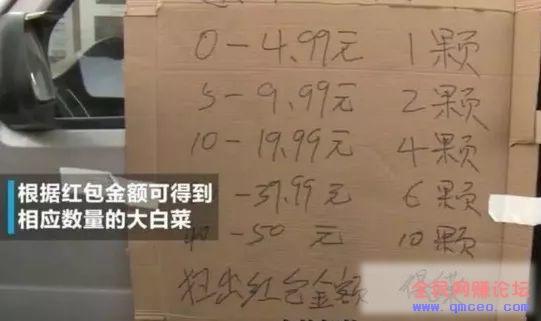 0-4.99元 1颗
5-9.99元 2颗
10-19.99元 4颗
-39.99元 6颗
根据红包金额可得到
相应数量的大白菜
-50元 10颗
扫出红包金额
全民网赚论坛
www.qmceo.com